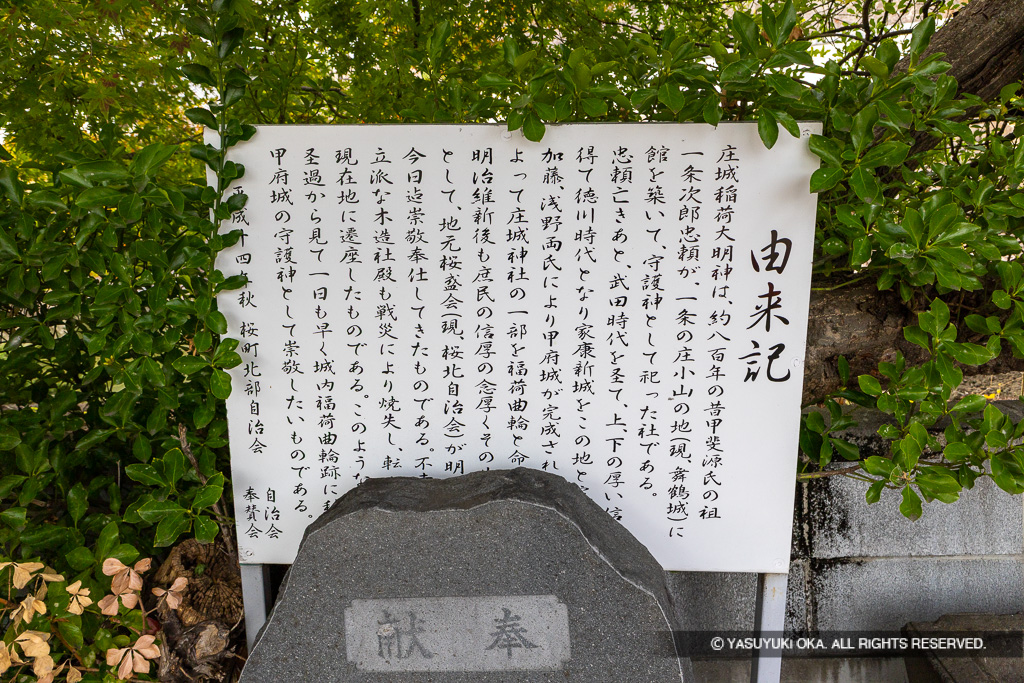 由来記
庄城稲荷大明神は、約八百年の昔甲斐源氏の祖
一条次郎忠頼が、一条の庄小山の地(現、舞鶴城)に
館を築いて、守護神として祀った社である。
忠頼亡きあと、武田時代を圣て、上、下の厚い信
得て徳川時代となり家康新城をこの地と
加藤、浅野両氏により甲府城が完成され
よって庄城神社の一部を福荷曲輪と命
明治維新後も庶民の信厚の念厚くその
として、地元桜盃会(現、桜北自治会)が明
今日迠崇敬奉仕してきたものである。不
立派な木造社殿も戦災により焼失し、転
現在地に遷座したものである。このような
圣過から見て一日も早く城内福荷曲輪跡に
甲府城の守護神として崇敬したいものである。
成十四年秋 桜町北部自治会
自治会
奉賛会
奉献
© YASUYUKI OKA. ALL RIGHTS RESERVED.